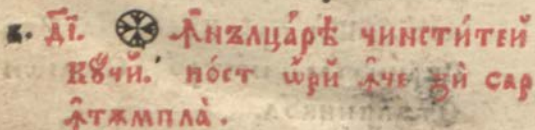 в. д҃і. Ꙟнълца́рѣ чинсти́тей
Крꙋ́чй. по́ст ѡ҆рй ꙟ҆че зѝ сар
ꙟ҆тѫмпла̀.